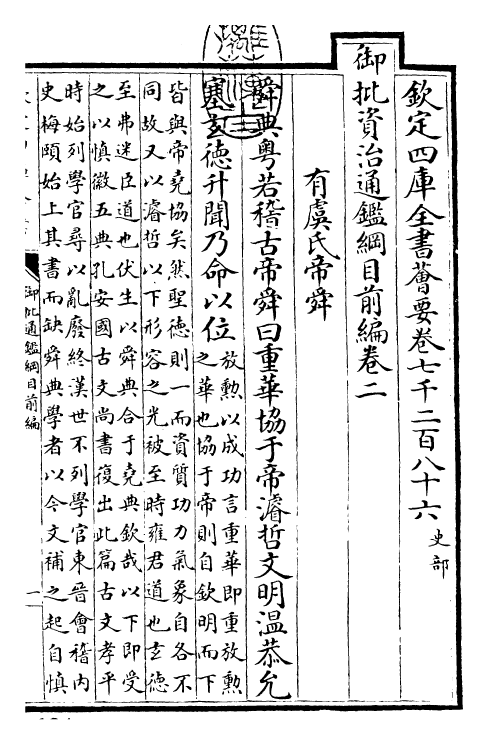 欽定四庫全書薈要卷七千二百八十六 史部
御批資治通鑑綱目前編卷二
有虞氏帝舜
舜典粤若稽古帝舜曰重華協于帝濬哲文明温恭允
塞玄德升聞乃命以位
放勲以成功言重華即重放勲
之華也協于帝則自欽明而下
皆與帝堯協矣然聖德則一而資質功力氣象自各不
同故又以濬哲以下形容之光被至時雍君道也玄德
至弗迷臣道也伏生以舜典合于堯典欽哉以下即受
之以慎徽五典孔安國古文尚書復出此篇古文孝平
時始列學官尋以亂廢終漢世不列學官東晉會稽内
史梅頤始上其書而缺舜典學者以今文補之起自慎
御批通鑑綱目前編
一